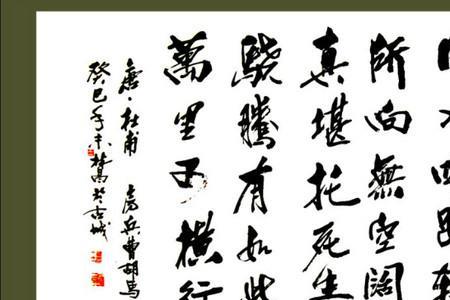 四蹄
所向無空闊
真堪托死生
驍騰有如此
萬里可橫行
唐·杜甫 房兵曹胡馬
癸巳年於古城